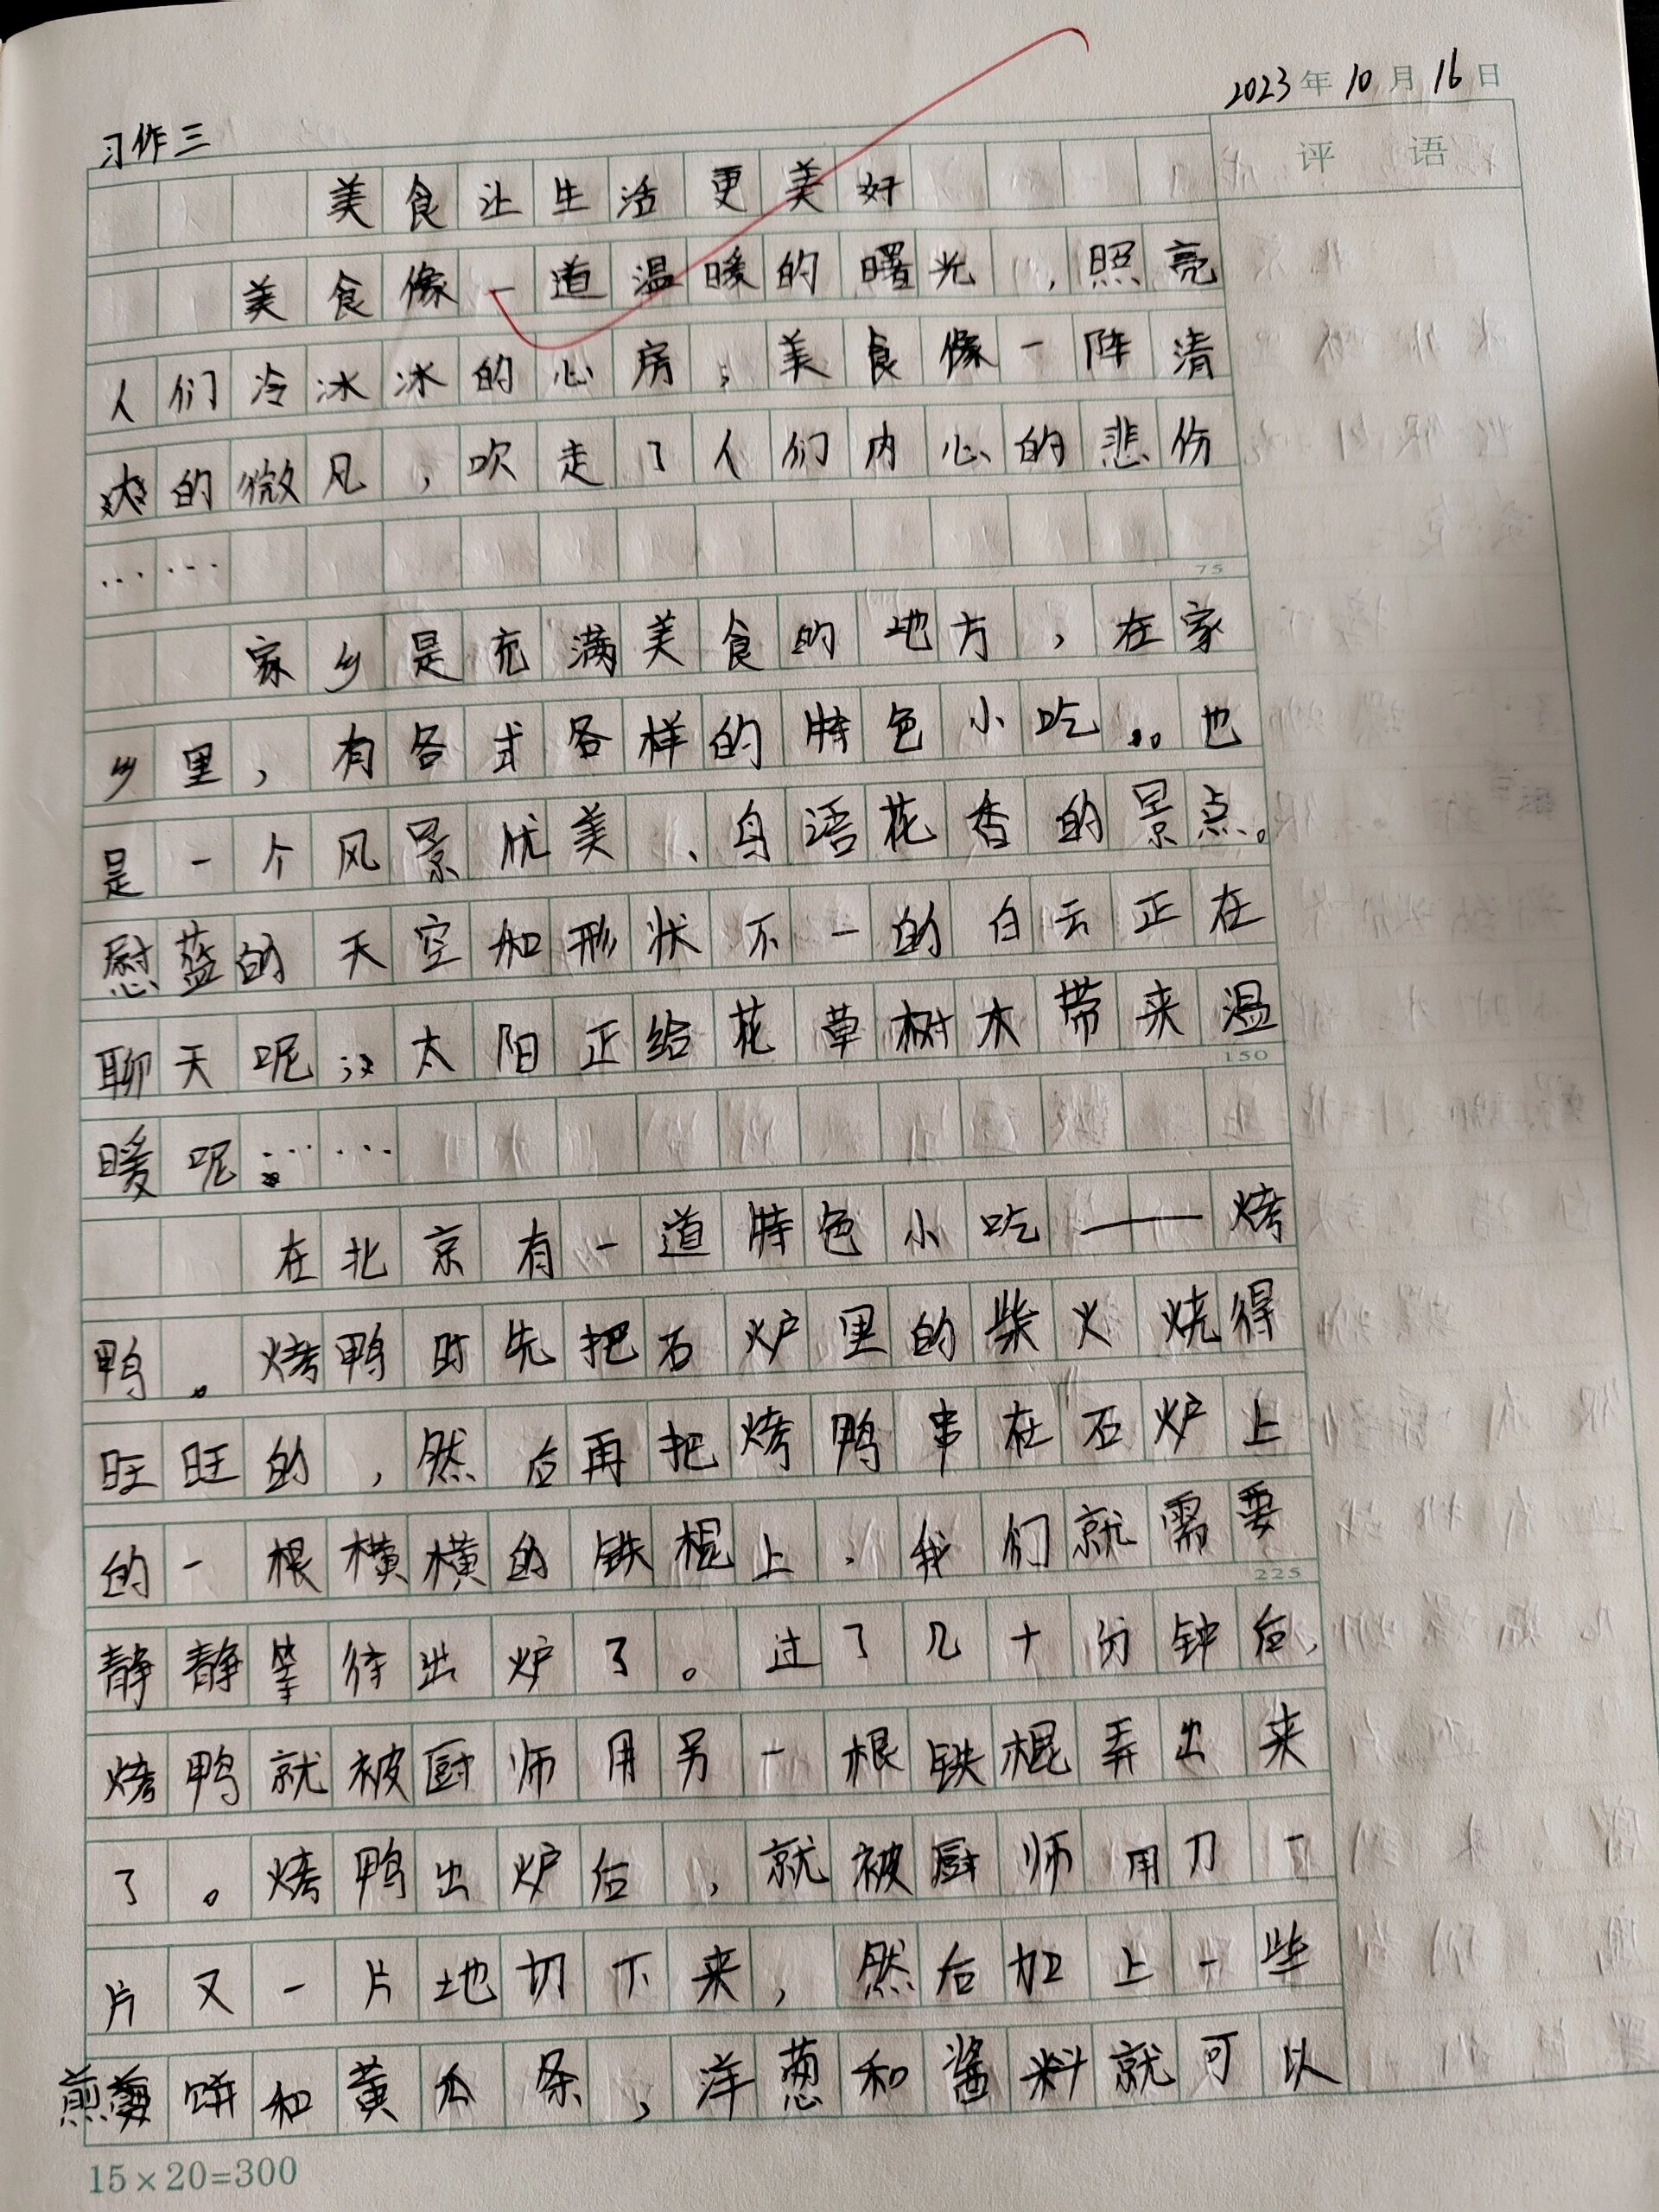 2023年10月16日
习作三
评语
美食让生活更美好
美食像一道温暖的曙光,照亮
人们冷冰冰的心房;美食像一阵清
的微风,吹走了人们内心的悲伤
……
75
家乡是充满美食的地方,在家
乡里,有各式各样的特色小吃。也
是一个风景优美、鸟语花香的景点。
慰蓝的天空和形状不一的白云正在
聊天呢;太阳正给花草树木带来温
150
暖呢……
在北京有一道特色小吃——烤
鸭。烤鸭时先把石炉里的柴火烧得
旺旺的,然后再把烤鸭串在石炉上
的一根横横的铁棍上,我们就需要
225
静静等待出炉了。过了几十分钟后,
烤鸭就被厨师用另一根铁棍弄出来
了。烤鸭出炉后,就被厨师用刀一
片又一片地切下来,然后加上一些
煎饼和黄瓜条,洋葱和酱料就可以
15×20=300